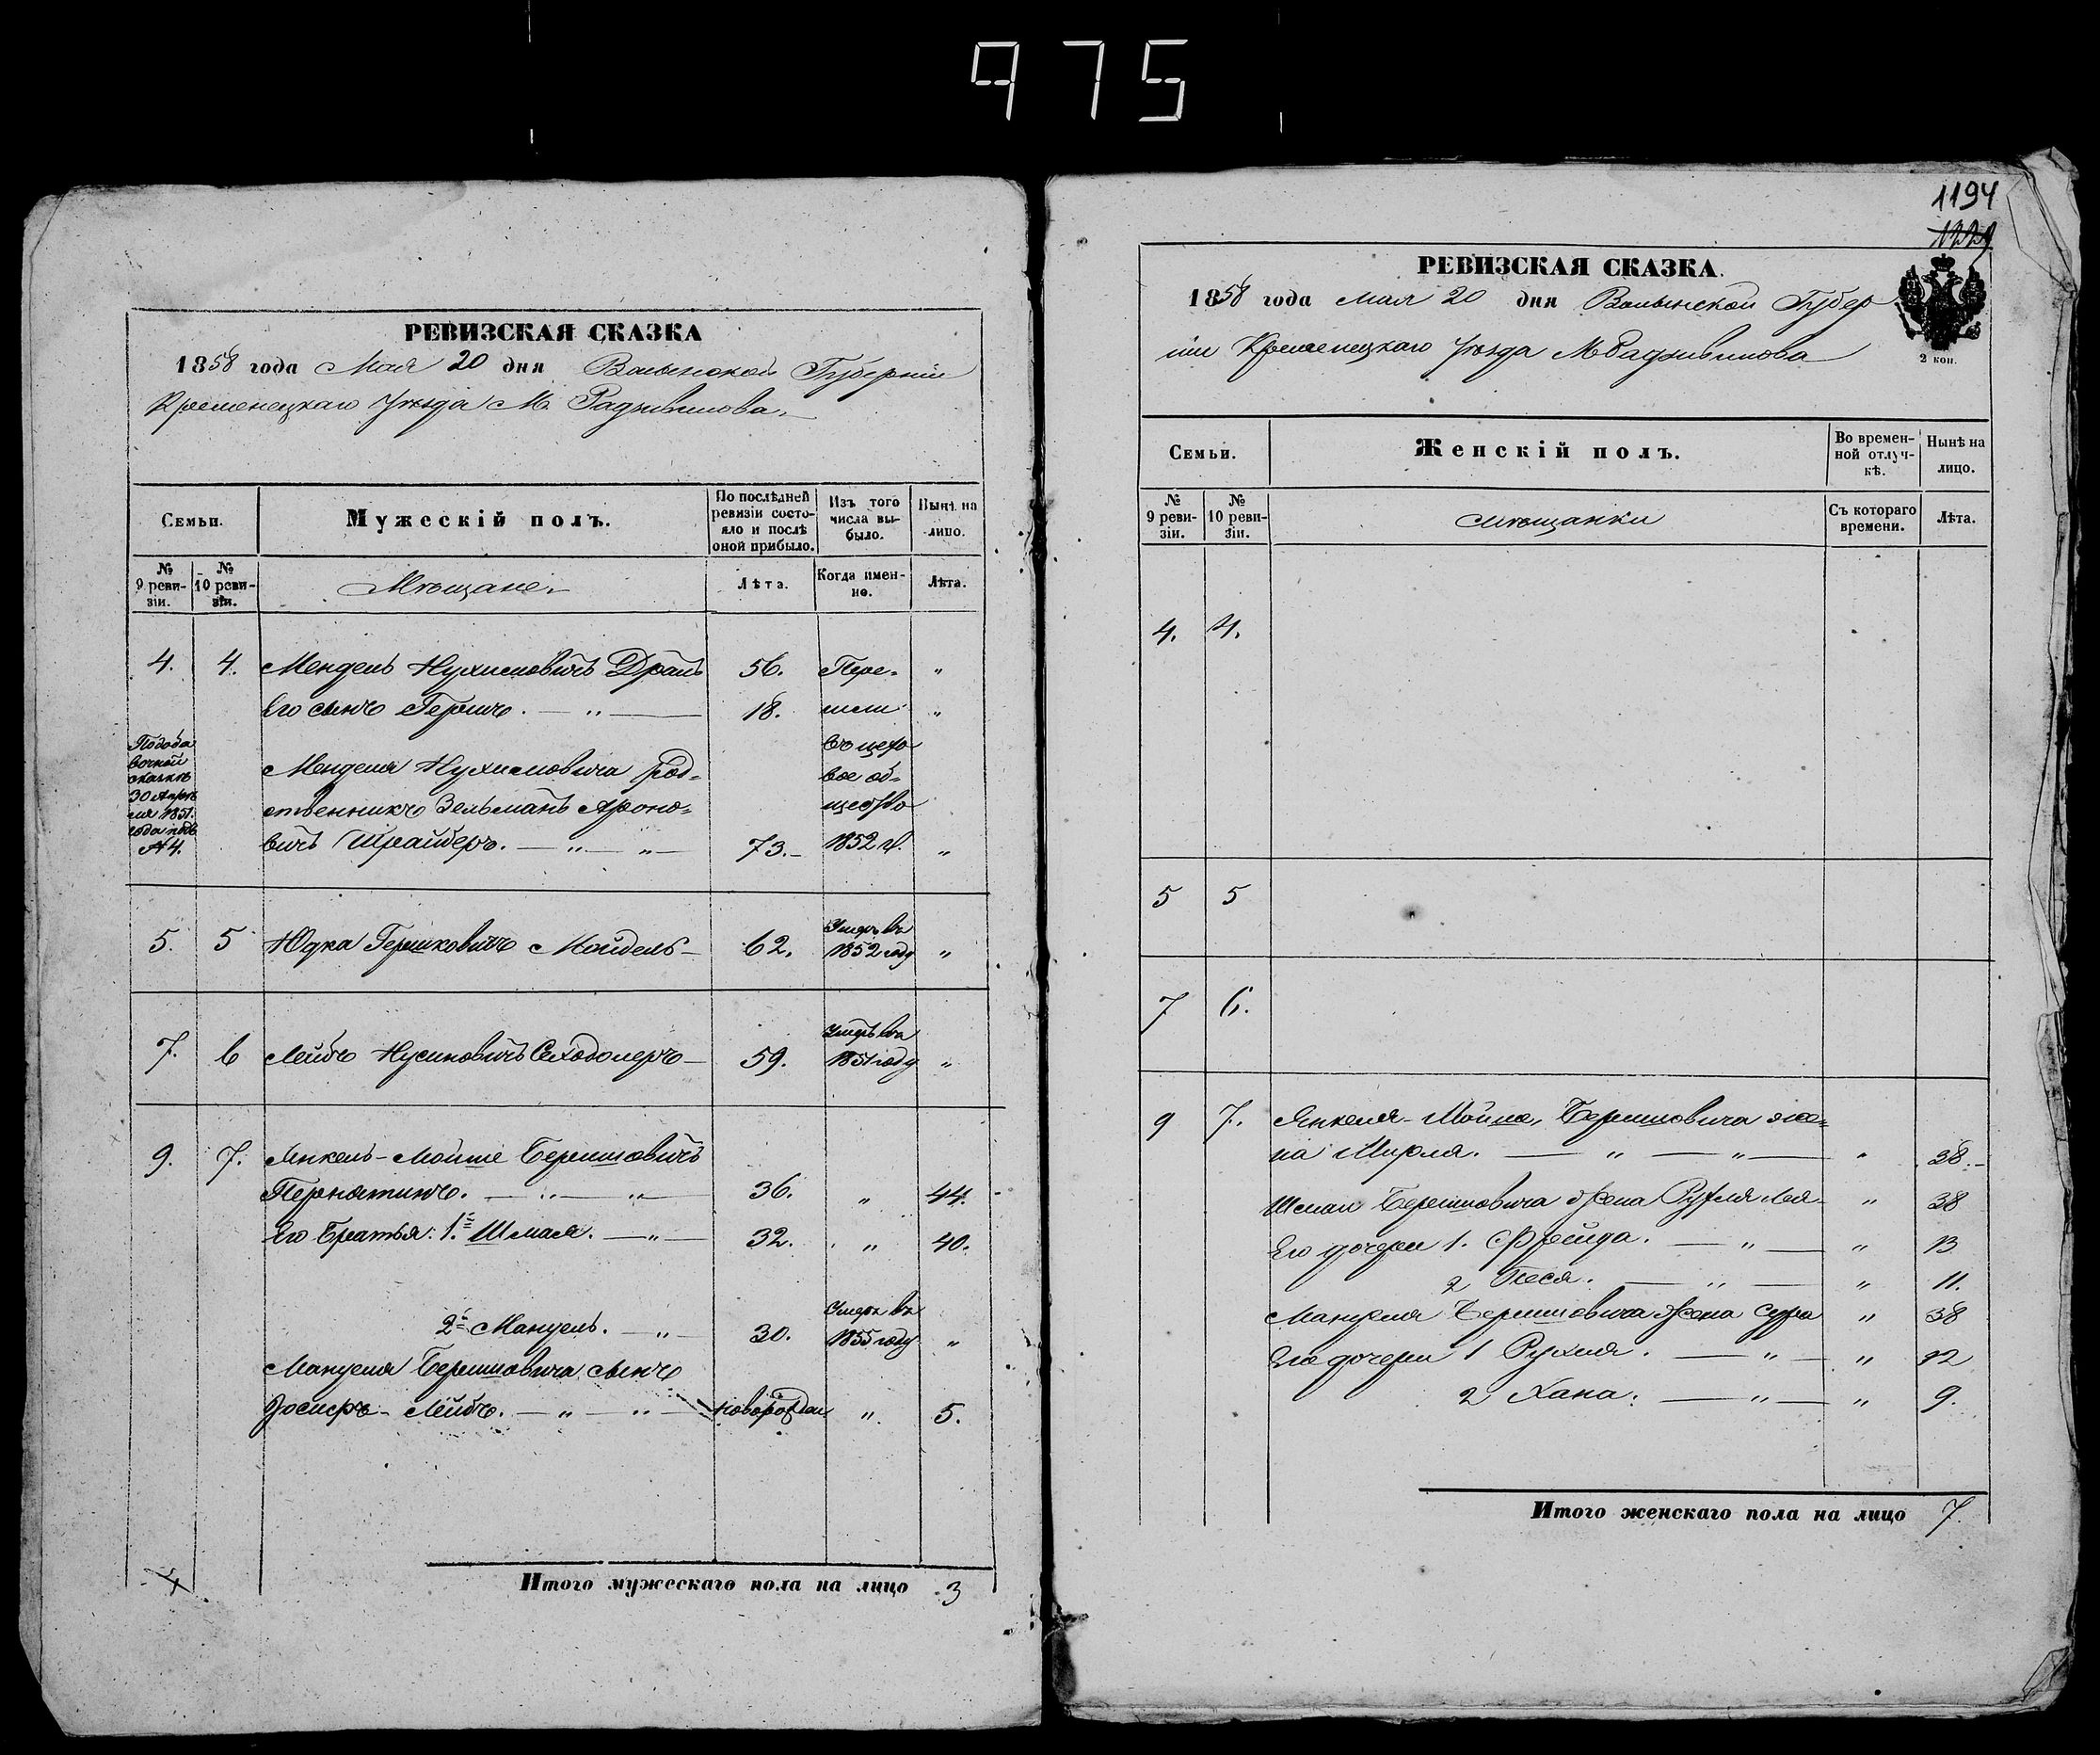 975
РЕВИЗСКАЯ СКАЗКА
1858 года Мая 20 дня Волынской Губерніи
Кременецкаго Уѣзда М. Радзивилова.
Семьи.
Мужескій полъ.
По послѣдней ревизіи состояло и послѣ оной прибыло.
Изъ того числа выбыло.
Нынѣ на лицо.
№ 9 ревизіи.
№ 10 ревизіи.
Мѣщане.
Лѣта.
Когда именно.
Лѣта.
4. 4. Мендель Нухимовичъ Драпъ 56. Пере= "
Его сынъ Гершъ. — " — 18. шли "
По добавочной сказкѣ 30 Апрѣля 1851. года подъ № 4.
въ цехо
Менделя Нухимовича род=
вое об=
ственникъ Зельманъ Ароно=
щество
вичъ Шрайберъ. — " — " — 73. 1852 г. "
5. 5 Юдка Гершковичъ Мойдель 62. Умеръ въ 1852 году "
7. 6 Лейбъ Нусиновичъ 59. Умеръ въ 1851 году "
9. 7. Янкель-Мойше Беришовичъ
Пернатинъ. — " — " — 36. " 44.
Его Братья: 1.й Шмая. — " — 32. " 40.
2й Мануель. — " — 30. Умеръ въ 1855 году "
Мануеля Беришовича сынъ
Іосифъ-Лейбъ. — " — " — новорожден " 5.
4
Итого мужескаго пола на лицо 3
1194
1229
РЕВИЗСКАЯ СКАЗКА.
1858 года Мая 20 дня Волынской Губер
ніи Кременецкаго Уѣзда М Радзивилова
2 коп.
Семьи.
Женскій полъ.
Во временной отлучкѣ.
Нынѣ на лицо.
№ 9 ревизіи.
№ 10 ревизіи.
Мѣщанки
Съ котораго времени.
Лѣта.
4. 4.
5 5
7 6.
9 7. Янкеля-Мойше, Беришовича же=
на Мирля. — " — " — " 38.
Шмаи Беришовича Жена Рухля Лея " 38
Его дочери 1. Фрейда. — " — " 13
2 Песя. — " — " 11.
Мануеля Беришовича Жена Сура " 38
Его дочери 1 Рухля. — " — " 12
2 Хана. — " — " 9.
Итого женскаго пола на лицо 7.